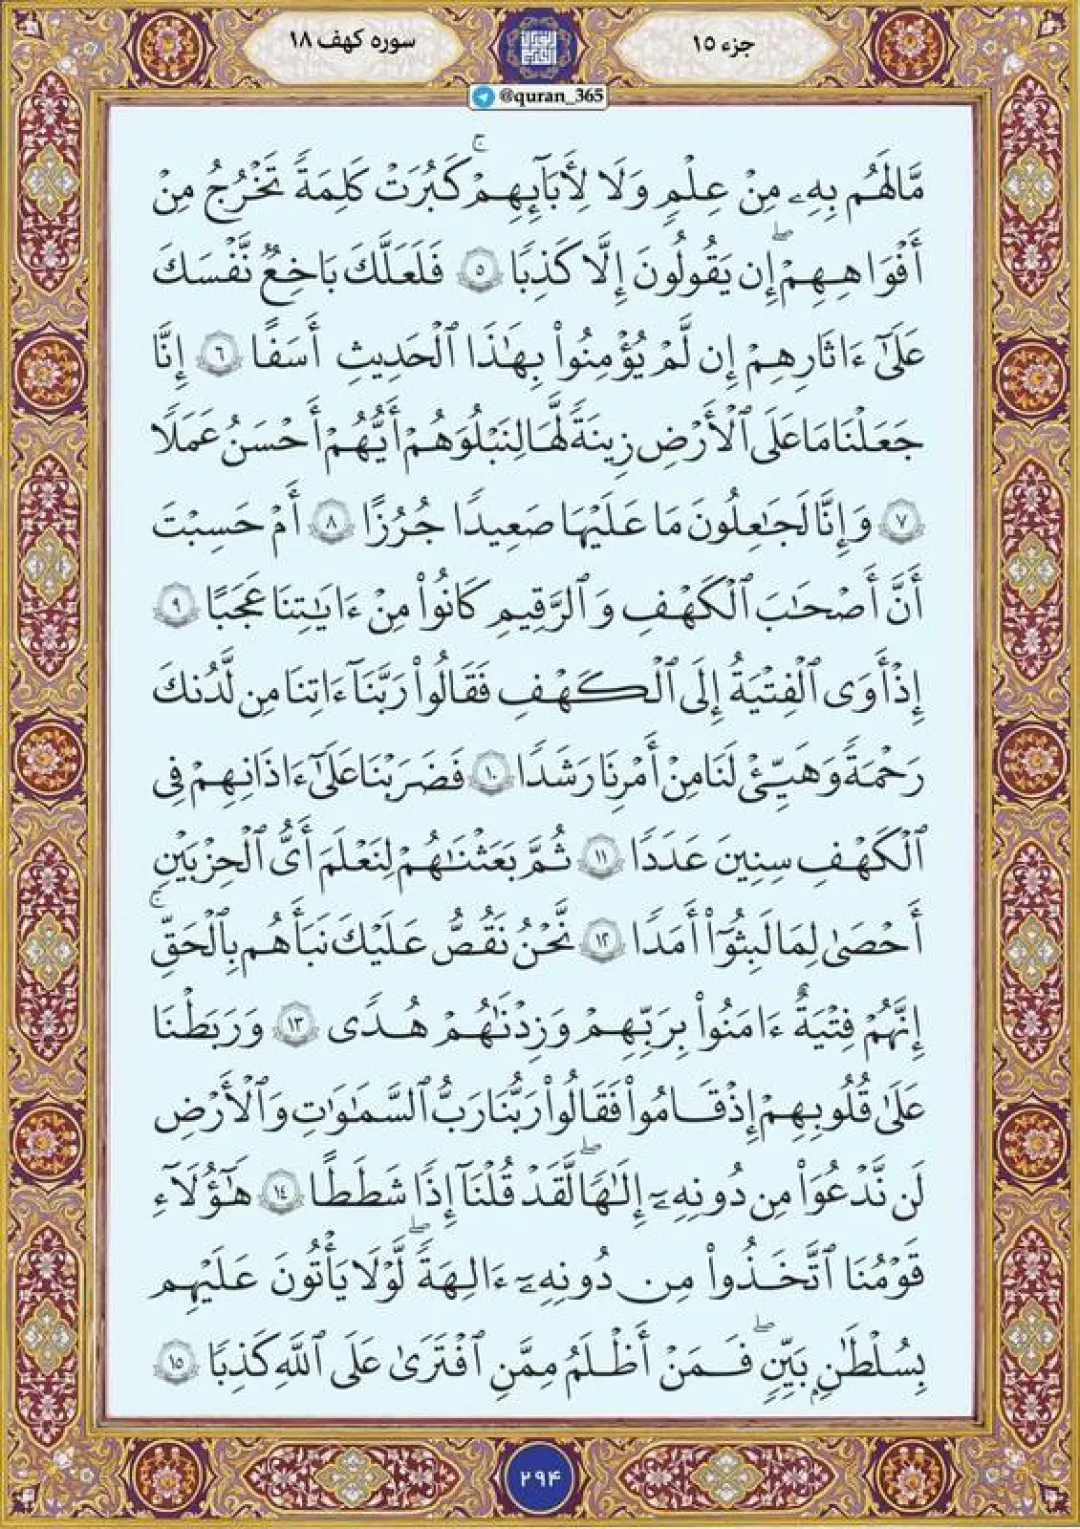 سوره کهف ۱۸
جزء ۱۵
@quran_365
مَّا لَهُم بِهِۦ مِنْ عِلْمٍ وَلَا لِأَبَآئِهِمْ ۚ كَبُرَتْ كَلِمَةً تَخْرُجُ مِنْ
أَفْوَاهِهِمْ ۖ إِن يَقُولُونَ إِلَّا كَذِبًا ٥ فَلَعَلَّكَ بَاخِعٌ نَّفْسَكَ
عَلَىٰٓ ءَاثَارِهِمْ إِن لَّمْ يُؤْمِنُوا۟ بِهَـٰذَا ٱلْحَدِيثِ أَسَفًا ٦ إِنَّا
جَعَلْنَا مَا عَلَى ٱلْأَرْضِ زِينَةً لَّهَا لِنَبْلُوَهُمْ أَيُّهُمْ أَحْسَنُ عَمَلًا
٧ وَإِنَّا لَجَـٰعِلُونَ مَا عَلَيْهَا صَعِيدًا جُرُزًا ٨ أَمْ حَسِبْتَ
أَنَّ أَصْحَـٰبَ ٱلْكَهْفِ وَٱلرَّقِيمِ كَانُوا۟ مِنْ ءَايَـٰتِنَا عَجَبًا ٩
إِذْ أَوَى ٱلْفِتْيَةُ إِلَى ٱلْكَهْفِ فَقَالُوا۟ رَبَّنَآ ءَاتِنَا مِن لَّدُنكَ
رَحْمَةً وَهَيِّئْ لَنَا مِنْ أَمْرِنَا رَشَدًا ١٠ فَضَرَبْنَا عَلَىٰٓ ءَاذَانِهِمْ فِى
ٱلْكَهْفِ سِنِينَ عَدَدًا ١١ ثُمَّ بَعَثْنَـٰهُمْ لِنَعْلَمَ أَىُّ ٱلْحِزْبَيْنِ
أَحْصَىٰ لِمَا لَبِثُوٓا۟ أَمَدًا ١٢ نَّحْنُ نَقُصُّ عَلَيْكَ نَبَأَهُم بِٱلْحَقِّ ۚ
إِنَّهُمْ فِتْيَةٌ ءَامَنُوا۟ بِرَبِّهِمْ وَزِدْنَـٰهُمْ هُدًى ١٣ وَرَبَطْنَا
عَلَىٰ قُلُوبِهِمْ إِذْ قَامُوا۟ فَقَالُوا۟ رَبُّنَا رَبُّ ٱلسَّمَـٰوَٰتِ وَٱلْأَرْضِ
لَن نَّدْعُوَا۟ مِن دُونِهِۦٓ إِلَـٰهًا ۖ لَّقَدْ قُلْنَآ إِذًا شَطَطًا ١٤ هَـٰٓؤُلَآءِ
قَوْمُنَا ٱتَّخَذُوا۟ مِن دُونِهِۦٓ ءَالِهَةً ۖ لَّوْلَا يَأْتُونَ عَلَيْهِم
بِسُلْطَـٰنٍۭ بَيِّنٍ ۖ فَمَنْ أَظْلَمُ مِمَّنِ ٱفْتَرَىٰ عَلَى ٱللَّهِ كَذِبًا ١٥
۲۹۴